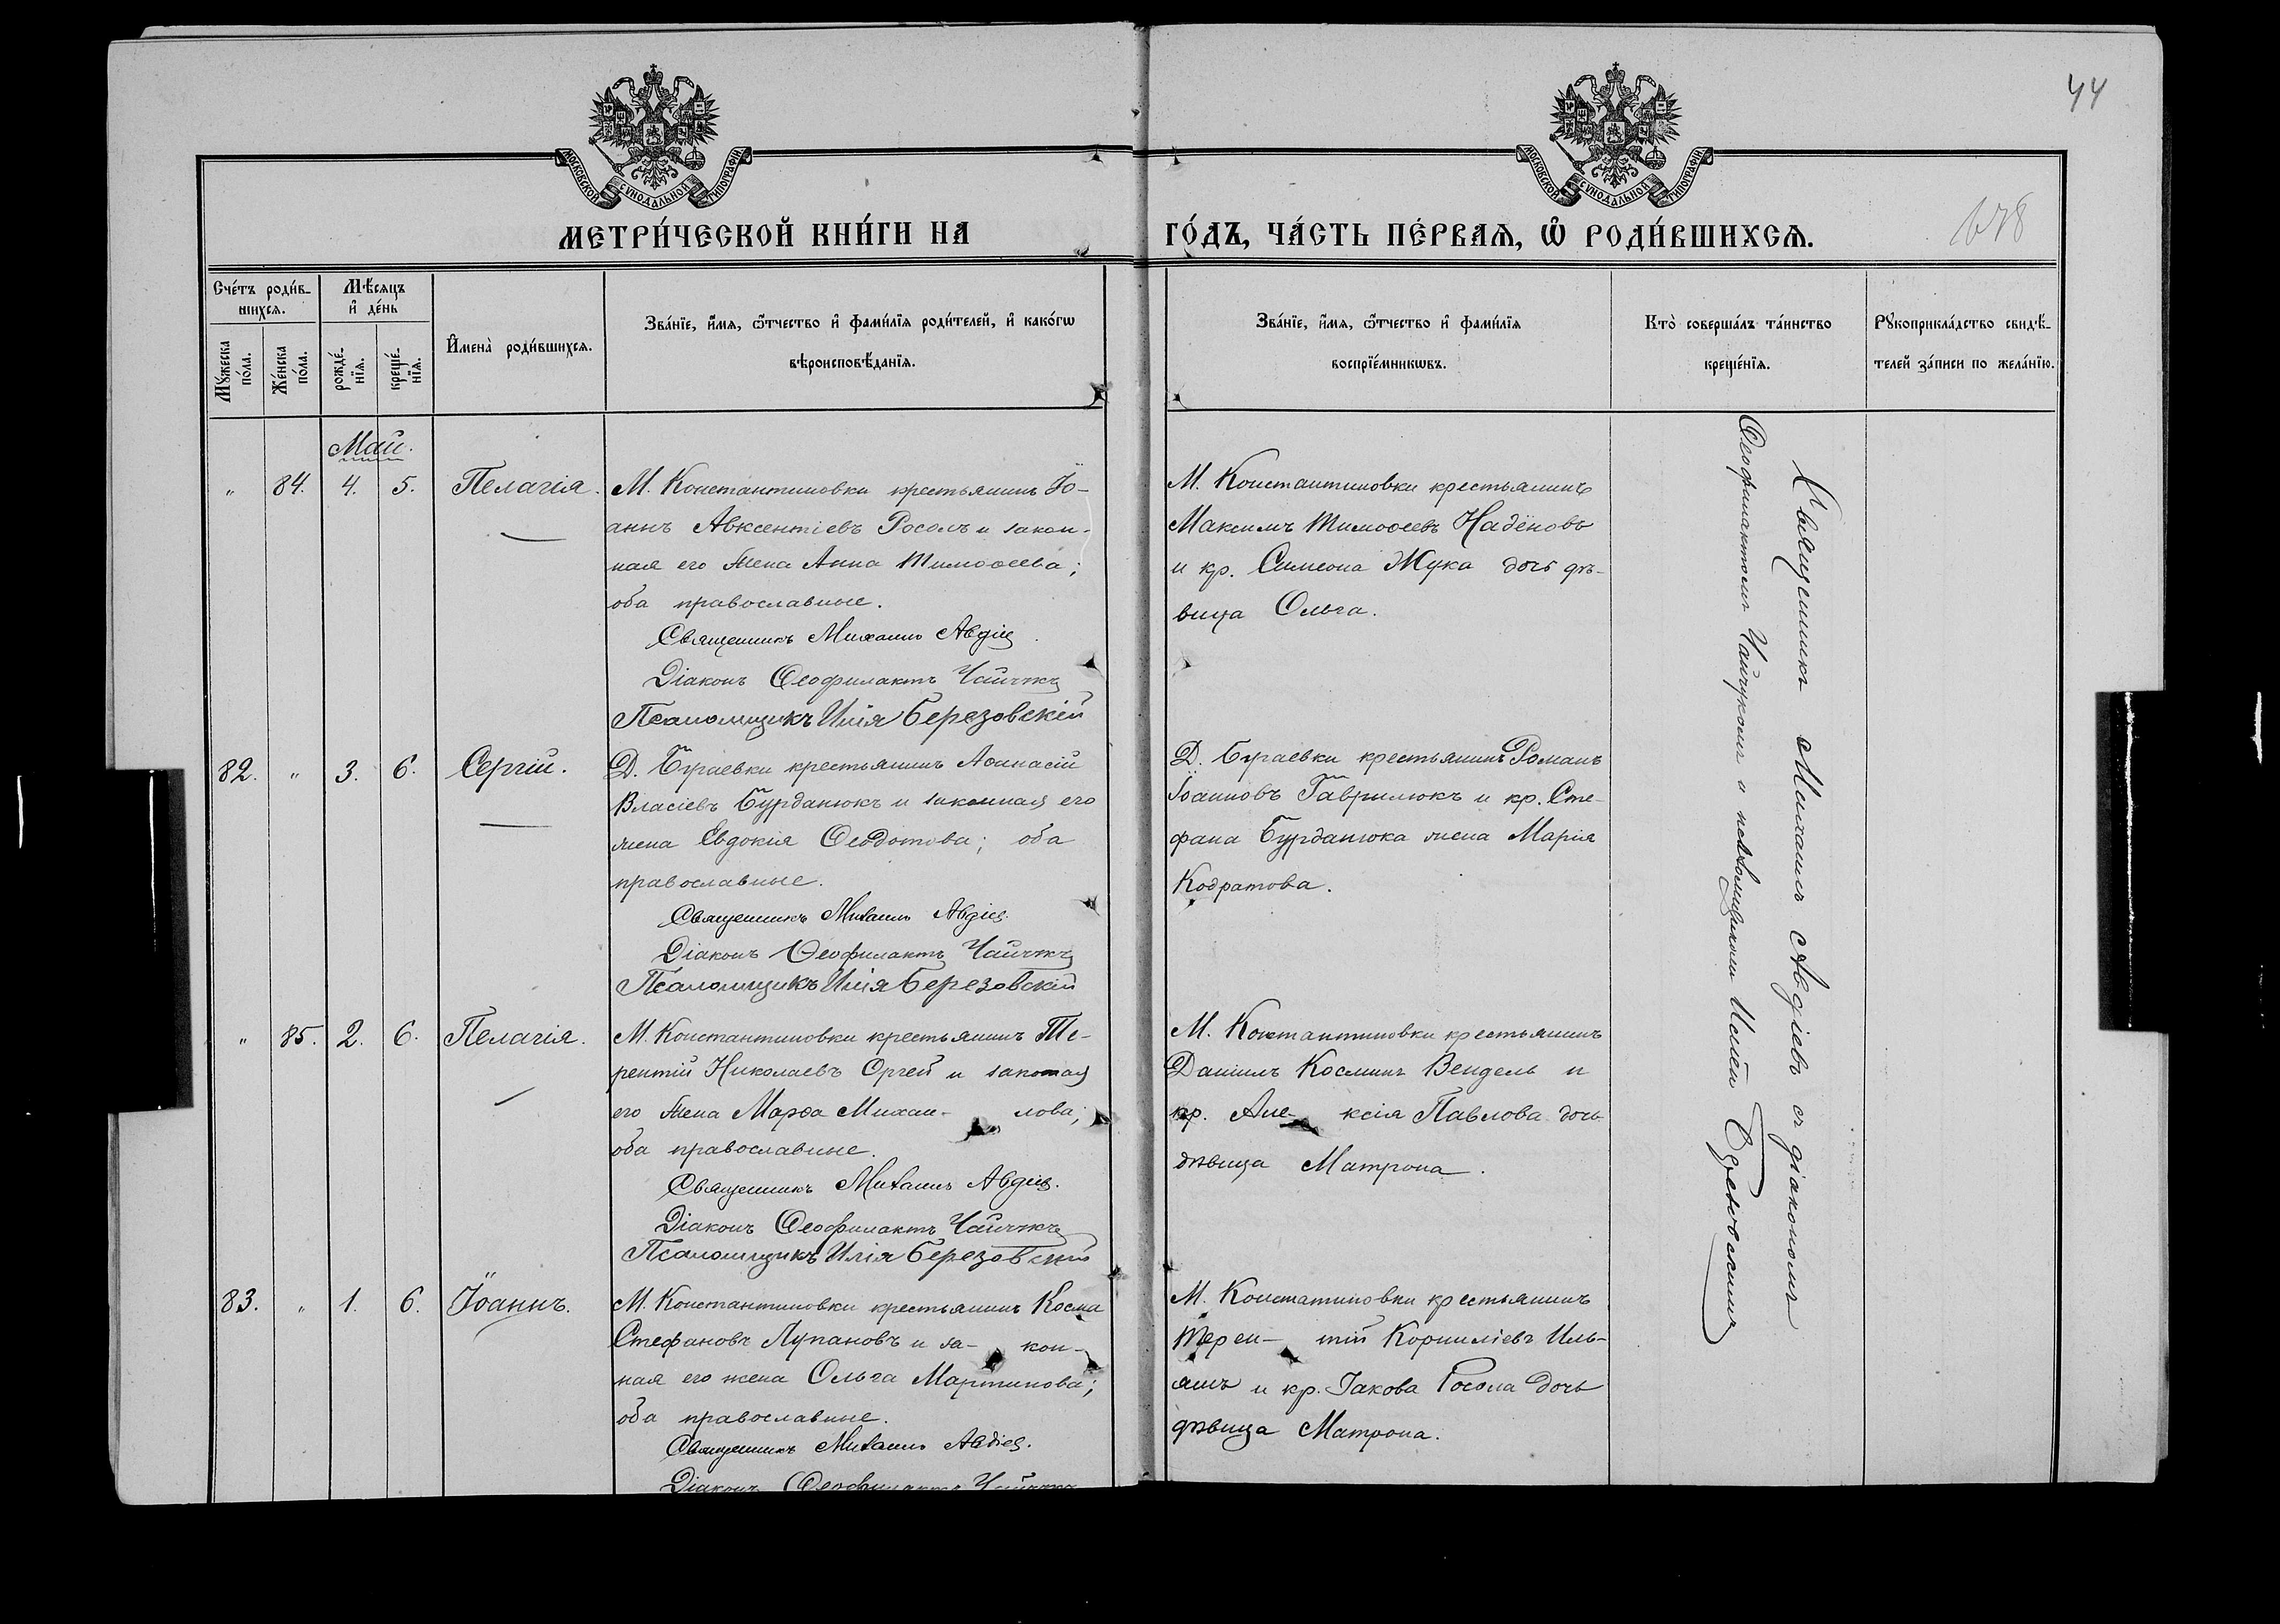 44
678
МОСКОВСКОЙ СУНОДАЛЬНОЙ ТИПОГРАФІИ
МОСКОВСКОЙ СУНОДАЛЬНОЙ ТИПОГРАФІИ
МЕТРИ́ЧЕСКОЙ КНИ́ГИ НА
ГО́ДЪ, ЧА́СТЬ ПЕ́РВАѦ, Ѽ РОДИ́ВШИХСѦ.
Сче́тъ роди́в-
шихсѧ.
Мꙋ́жеска по́ла.
Же́нска по́ла.
Мѣ́сѧцъ
и҆ де́нь
рожде́-
нїѧ.
креще́-
нїѧ.
И҆мена̀ роди́вшихсѧ.
Зва́нїе, и҆́мѧ, ѻ҆́тчество и҆ фами́лїѧ роди́телей, и҆ како́гѡ
вѣроисповѣ́данїѧ.
Зва́нїе, и҆́мѧ, ѻ҆́тчество и҆ фами́лїѧ
воспрїе́мникѡвъ.
Кто̀ соверша́лъ та́инство
креще́нїѧ.
Рꙋкоприкла́дство свидѣ́-
телей за́писи по жела́нїю.
Май.
„ 84. 4. 5. Пелагія.
М. Константиновки крестьянинъ Іо-
аннъ Авксентіевъ Росолъ и закон-
ная его жена Анна Тимоѳеева;
оба православные.
Священникъ Михаилъ Авдіев
Діаконъ Ѳеофилактъ Чайчукъ
Псаломщикъ Илія Березовскій
М. Константиновки крестьянинъ
Максимъ Тимоѳеевъ Надёновъ
и кр. Симеона Жука дочь дѣ-
вица Ольга.
82. „ 3. 6. Сергій.
Д. Бураевки крестьянинъ Аѳанасій
Власіевъ Бурданюкъ и законная его
жена Евдокія Ѳеодотова; оба
православные.
Священникъ Михаилъ Авдіев.
Діаконъ Ѳеофилактъ Чайчукъ
Псаломщикъ Илія Березовскій
Д. Бураевки крестьянинъ Романъ
Іоанновъ Гаврилюкъ и кр. Сте-
фана Бурданюка жена Марія
Кодратова.
„ 85. 2. 6. Пелагія.
М. Константиновки крестьянинъ Те-
рентій Николаевъ Оргей и законая
его жена Марѳа Михаи- лова;
оба православные.
Священникъ Михаилъ Авдіев.
Діаконъ Ѳеофилактъ Чайчукъ
Псаломщикъ Илія Березовскій
М. Константиновки крестьянинъ
Даніилъ Косминъ Вендель и
кр. Але- ксія Павлова дочь
дѣвица Матрона.
83. „ 1. 6. Іоаннъ.
М. Константиновки крестьянинъ Косма
Стефановъ Лупановъ и за- кон-
ная его жена Ольга Мартинова;
оба православные.
Священникъ Михаилъ Авдіев.
Діаконъ Ѳеофилактъ Чайчукъ
М. Констатиновки крестьянинъ
Терен- тій Корниліевъ Иль-
яшъ и кр. Іакова Росола дочь
дѣвица Матрона.
Священникъ Михаилъ Авдіевъ съ діакономъ
Ѳеофилактомъ Чайчукомъ и псаломщикомъ Иліею Березовскимъ